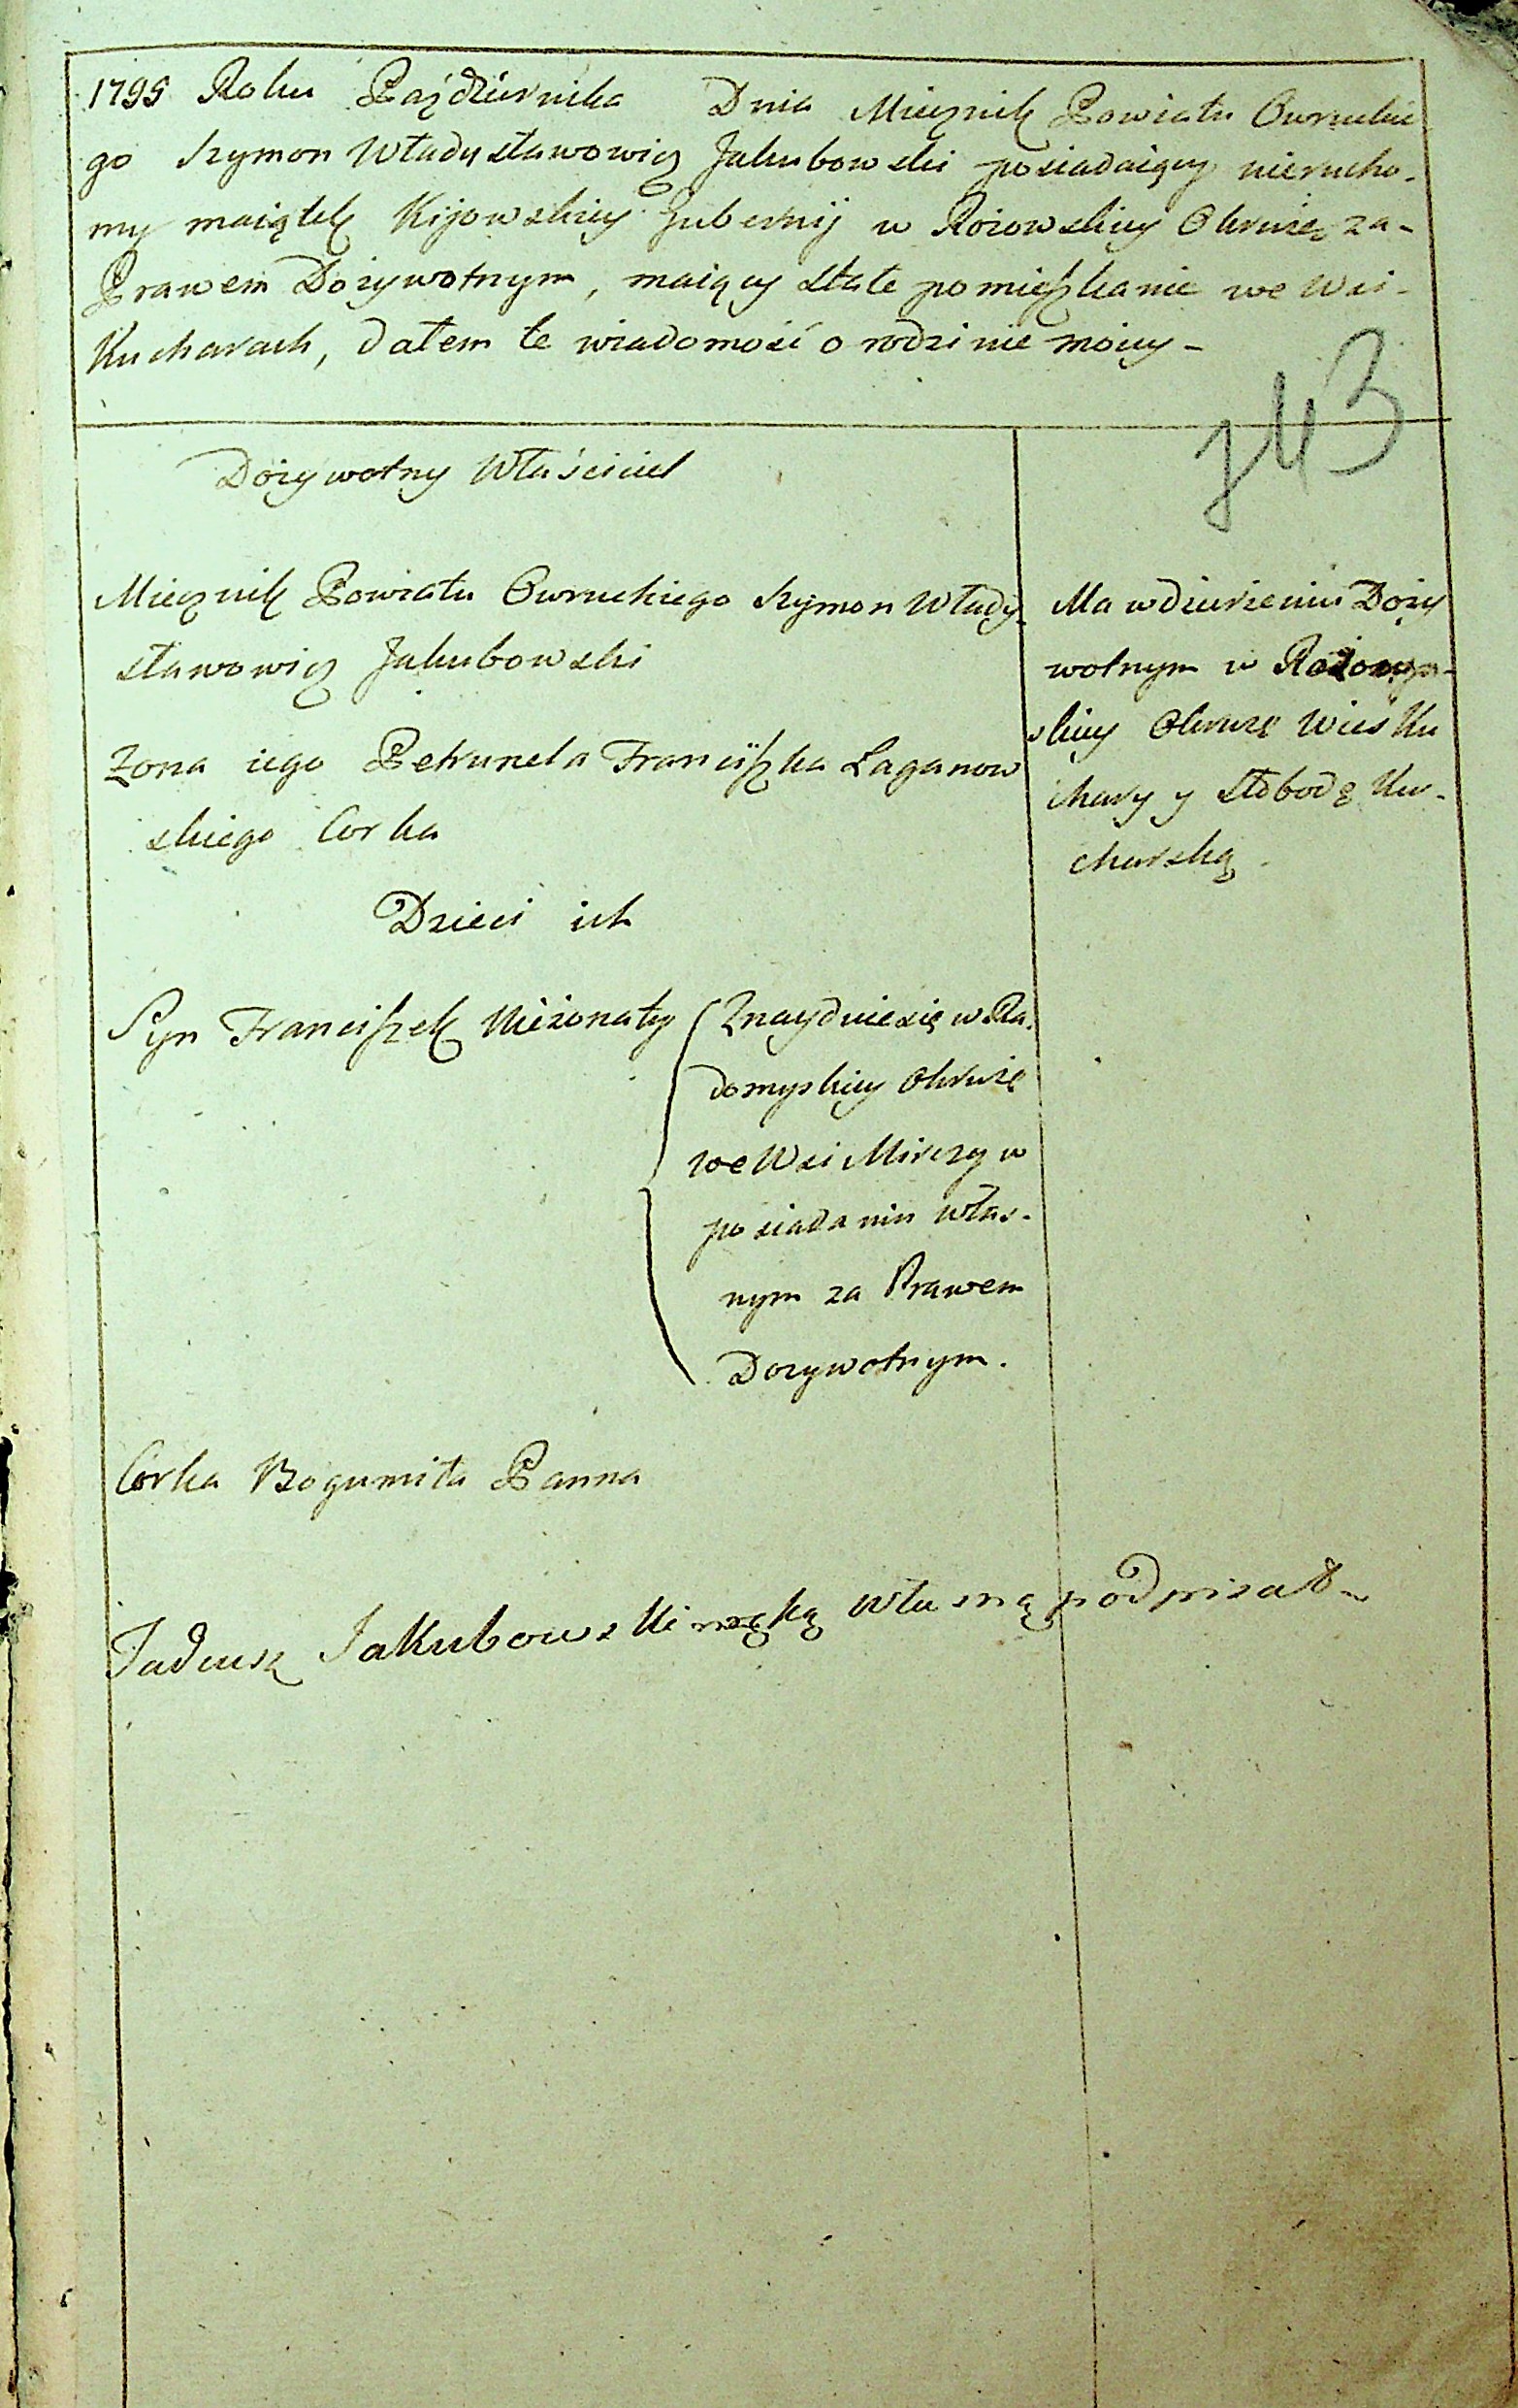 1795 Roku Pazdziernika Dnia Miecznik Powiatu Owruckie
go Szymon Władysławowicz Jakubowski posiadaiący nierucho-
my maiątek Kijowskiey Gubernij w Rożowskiey Okruze za-
Prawem Dożywotnym, maiący stałe pomieszkanie we Wsi-
Kucharach, dałem te wiadomość o rodzinie moiey -
743
Dożywotny Właściciel
Miecznik Powiatu Owruckiego Szymon Włady-
sławowicz Jakubowski
Żona iego Petrunela Franciszka Łaganow
skiego Corka
Dzieci ich
Syn Franciszek Nieżonaty
Znayduie się w Ra-
domyskiey Okruzę
we Wsi Mirczy w
posiadaniu włas-
nym za Prawem
Dozywotnym.
Corka Bogumiła Panna
Ma w dzierżeniu Doży
wotnym w
skiey Okruzę Wieś Ku
chary y Słobodę Ku-
charską.
Tadeusz Jakubowski ręką własną podpisał-